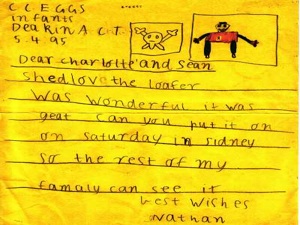 C C E G G S
infants
DeaKin A C T.
5 4 95
Dear charlotte and Sean
Shedlove the loafer
was wonderful it was
geat can you put it on
on saturday in sidney
so the rest of my
famaly can see it
best wishes
Nathan